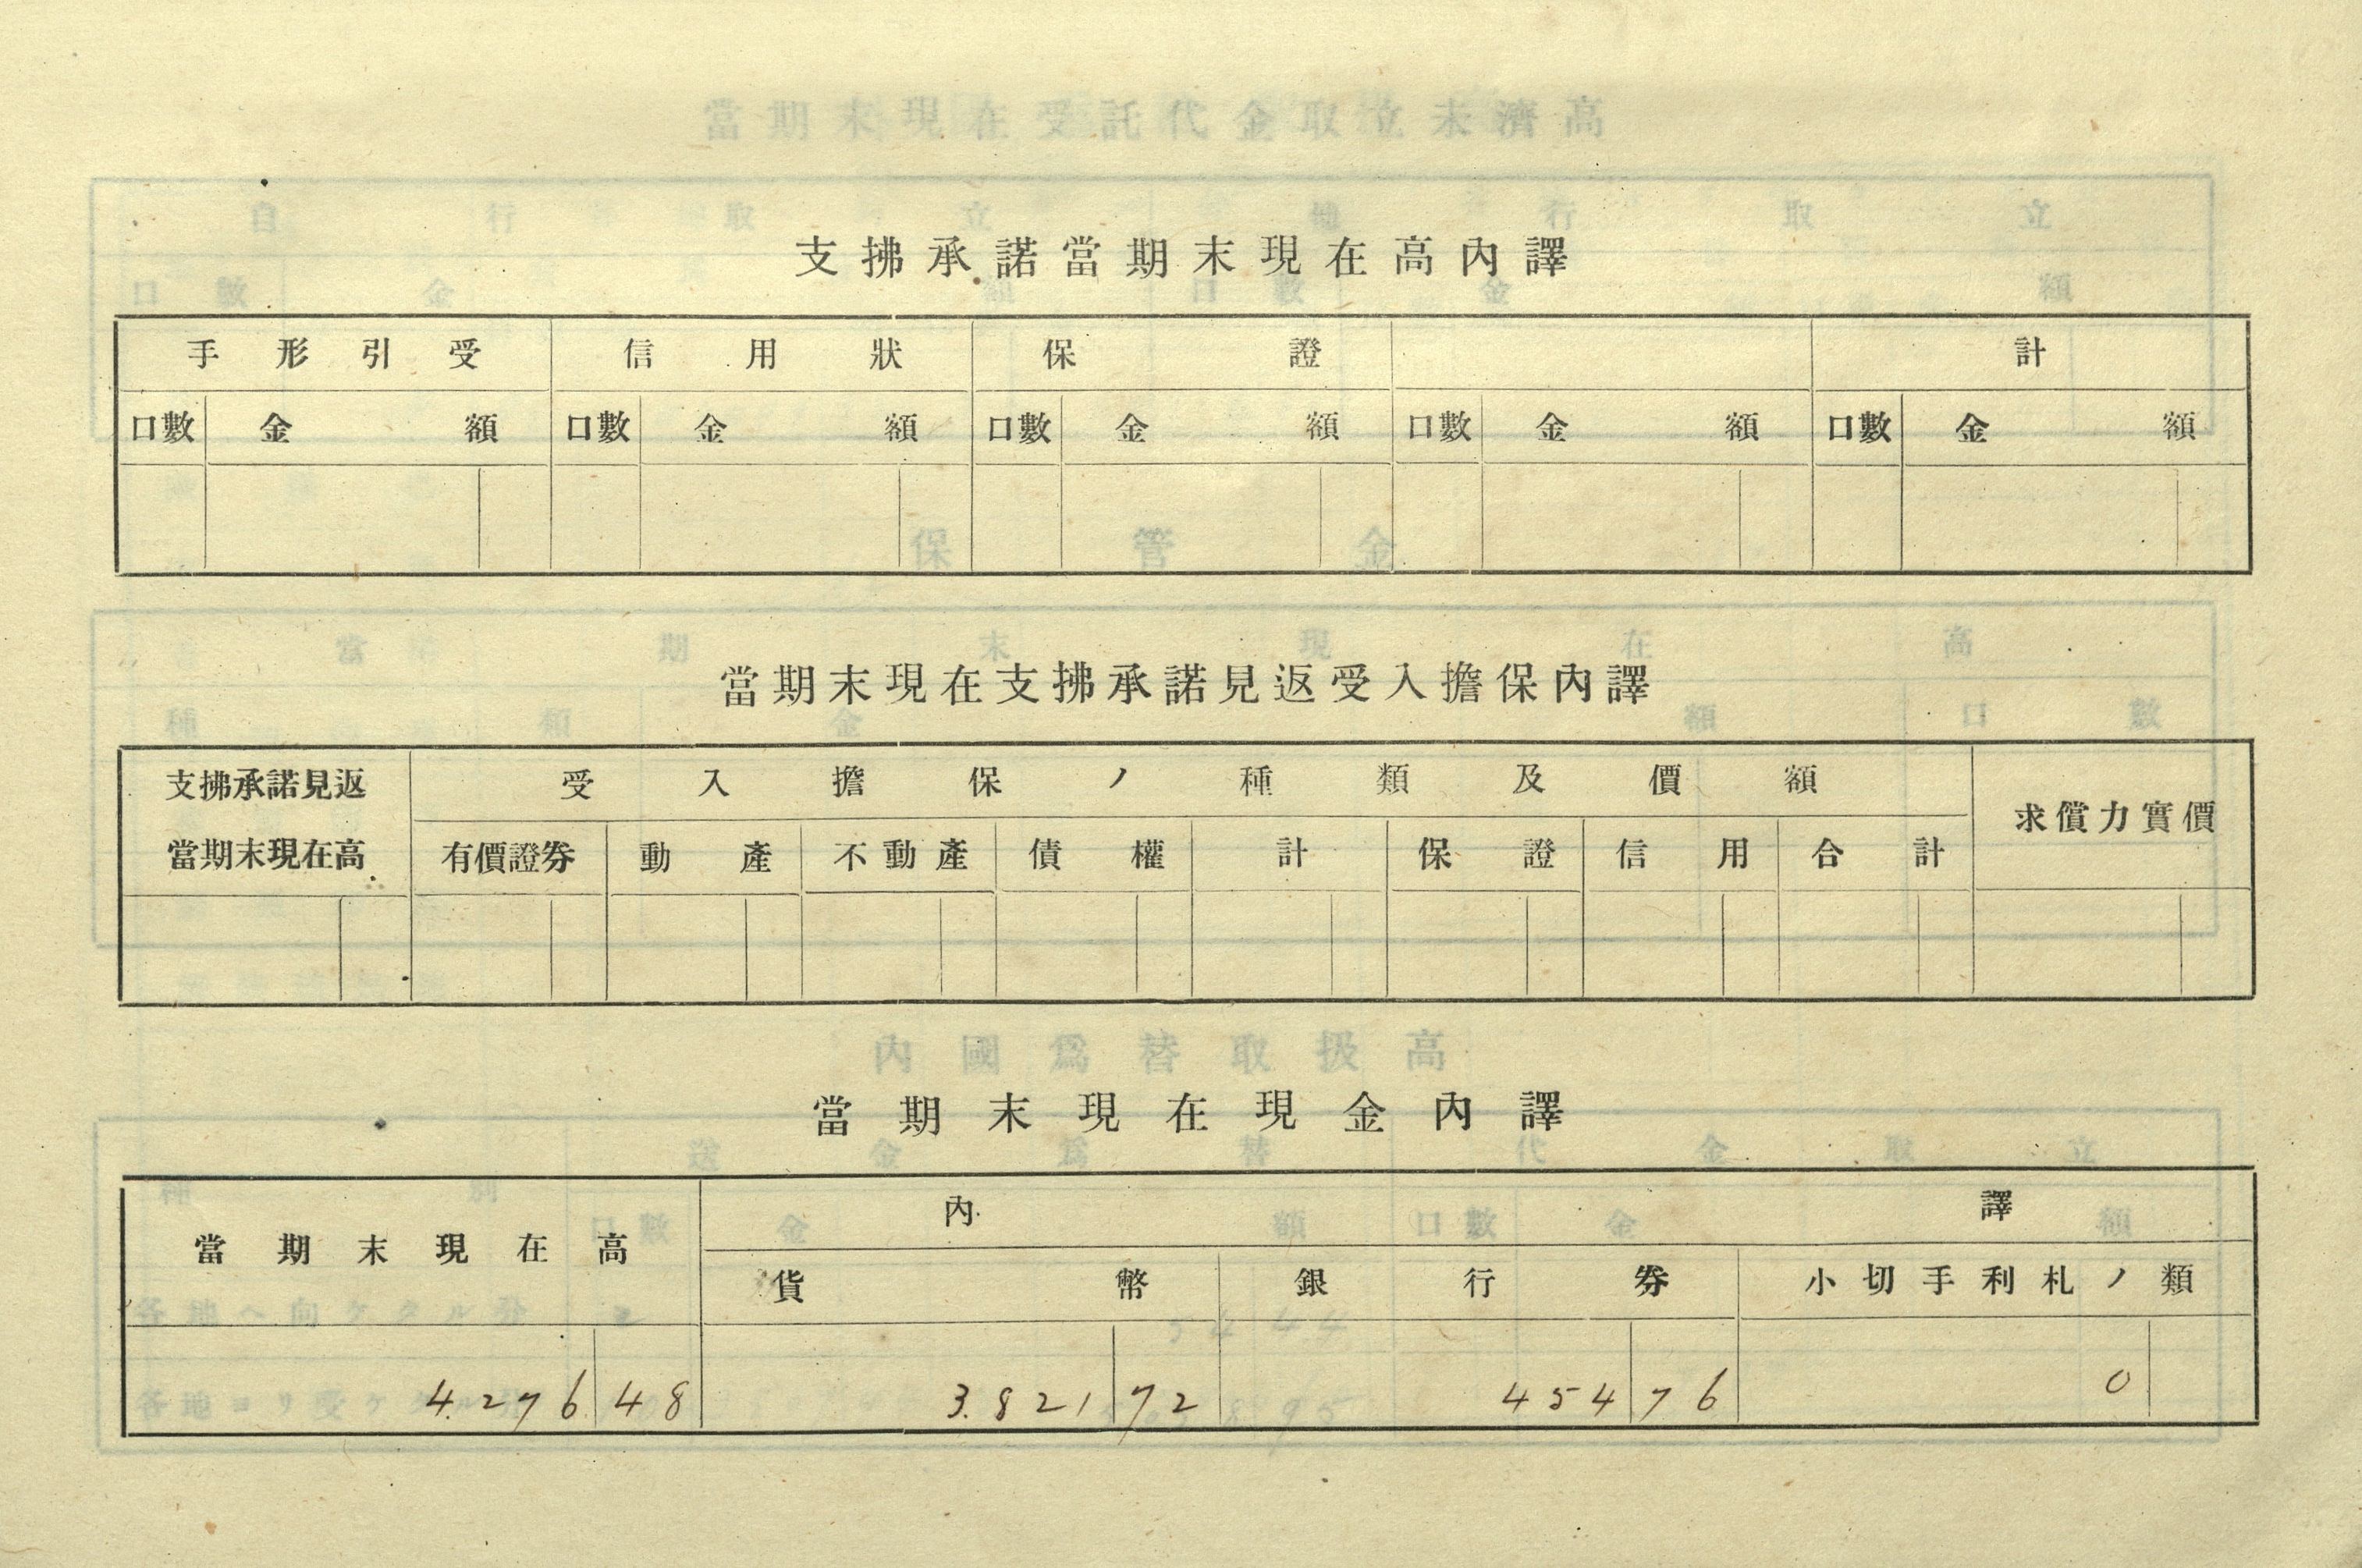 支拂承諾當期末現在高內譯
手形引受 信用狀 保證 計
口數 金額 口數 金額 口數 金額 口數 金額 口數 金額
當期末現在支拂承諾見返受入擔保內譯
支拂承諾見返當期末現在高 受入擔保ノ種類及價額 求償力實價
有價證券 動產 不動產 債權 計 保證 信用 合計
當期末現在現金內譯
當期末現在高 內譯
貨幣 銀行券 小切手利札ノ類
4.276 48 3.821 72 454 76 0